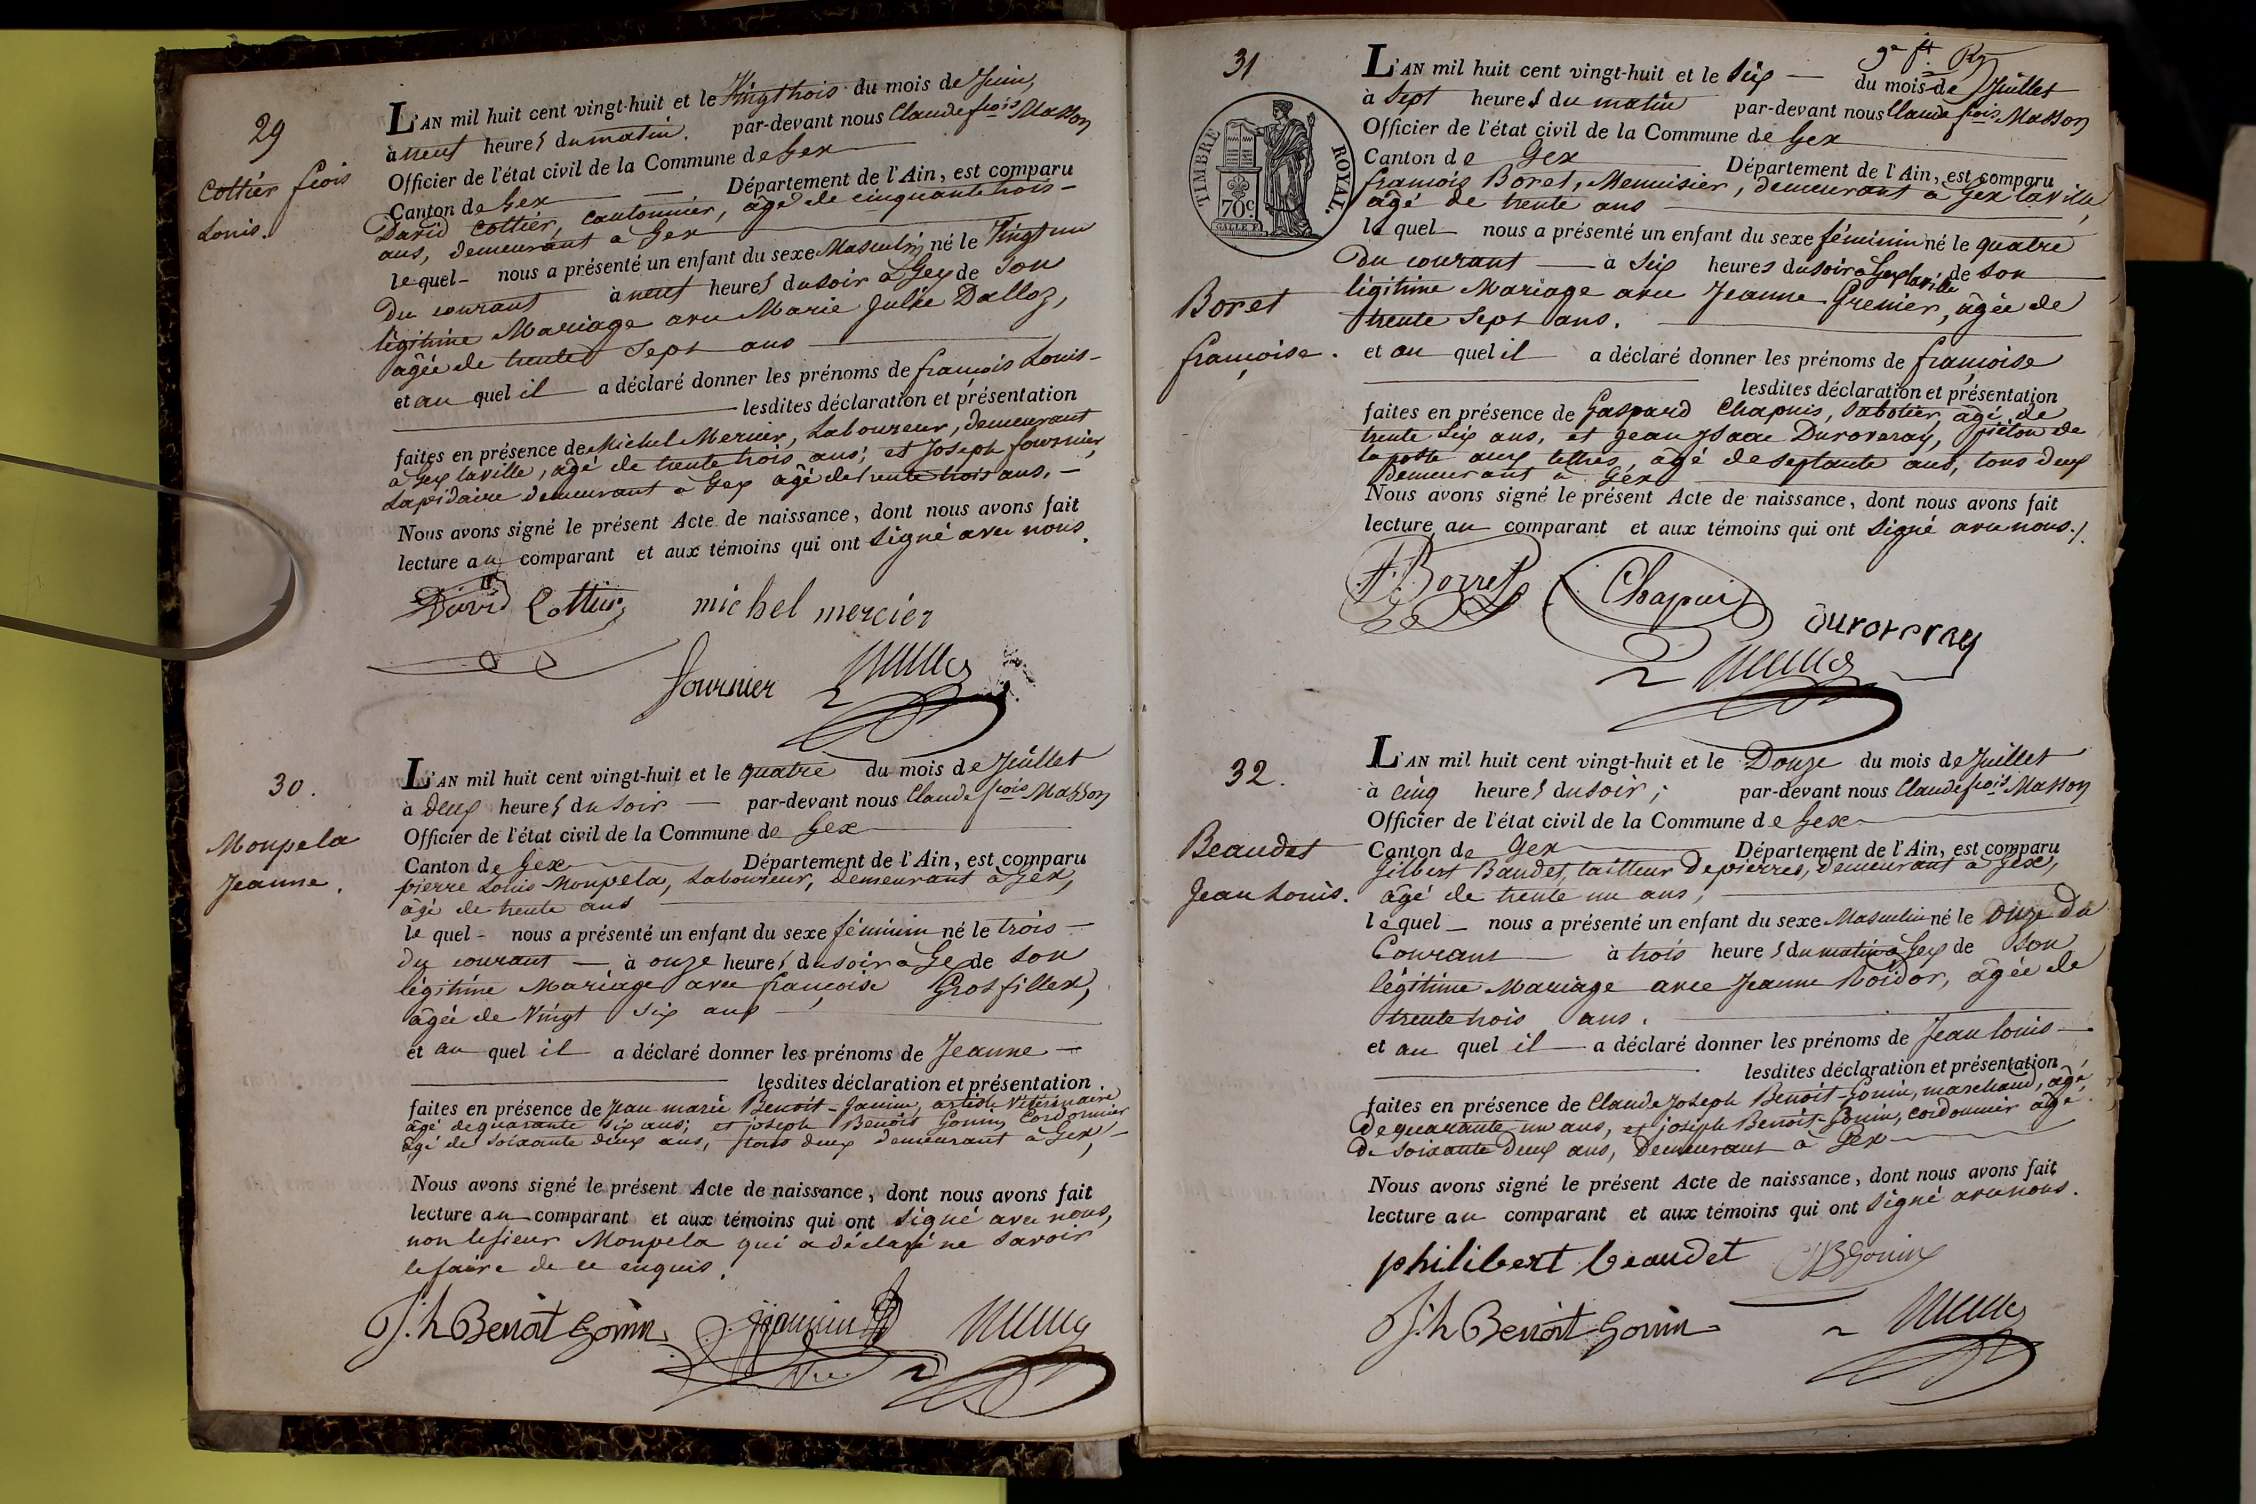 29
Cottier frois
Louis.
L'AN mil huit cent vingt-huit et le Vingt trois du mois de Juin,
à neuf heures du matin. par-devant nous Claude frois Masson
Officier de l'état civil de la Commune de Gex
Canton de Gex Département de l'Ain, est comparu
David Cottier, cantonnier, âgé de cinquante trois
ans, demeurant à Gex
lequel nous a présenté un enfant du sexe Masculin né le Vingt un
Du courant à neuf heures du soir à Gex de son
légitime Mariage avec Marie Julie Dalloz,
âgée de trente sept ans
et au quel il a déclaré donner les prénoms de françois Louis
lesdites déclaration et présentation
faites en présence de Michel Mercier, Laboureur, demeurant
à Gex la ville, âgé de trente trois ans; et Joseph fournier,
Lapidaire demeurant à Gex âgé de trente trois ans,
Nous avons signé le présent Acte de naissance, dont nous avons fait
lecture au comparant et aux témoins qui ont signé avec nous.
David Cottier michel mercier
fournier
30.
Monpela
Jeanne.
L'AN mil huit cent vingt-huit et le quatre du mois de Juillet
à deux heures du soir par-devant nous Claude frois Masson
Officier de l'état civil de la Commune de Gex
Canton de Gex Département de l'Ain, est comparu
pierre Louis Monpela, Laboureur, demeurant à Gex,
âgé de trente ans
le quel nous a présenté un enfant du sexe féminin né le trois
du courant à onze heures du soir à Gex de son
légitime Mariage avec françoise Grosfillex,
âgée de Vingt six ans
et au quel il a déclaré donner les prénoms de Jeanne
lesdites déclaration et présentation
faites en présence de Jean marie Benoit-Janin, artiste Vétérinaire
âgé de quarante six ans; et joseph Benoit Gonin, Cordonnier
âgé de soixante deux ans, tous deux demeurant à Gex,
Nous avons signé le présent Acte de naissance, dont nous avons fait
lecture au comparant et aux témoins qui ont signé avec nous,
non le sieur Monpela qui a déclaré ne savoir
le faire de ce enquis.
J.h Benoit Gonin
31
TIMBRE ROYAL.
70c
Boret
françoise.
L'AN mil huit cent vingt-huit et le Six du mois de Juillet
à Sept heures du matin par-devant nous Claude frois Masson
Officier de l'état civil de la Commune de Gex
Canton de Gex Département de l'Ain, est comparu
françois Boret, Menuisier, demeurant à Gex la ville,
âgé de trente ans
le quel nous a présenté un enfant du sexe féminin né le quatre
Du courant à six heures du soir à Gex la ville de son
légitime Mariage avec Jeanne Grenier, âgée de
trente sept ans.
et au quel il a déclaré donner les prénoms de françoise
lesdites déclaration et présentation
faites en présence de Gaspard Chapuis, sabotier, âgé de
trente six ans, et Jean Isaac Duroveray, piéton de
la poste aux lettres, âgé de septante ans, tous deux
demeurant à Gex
Nous avons signé le présent Acte de naissance, dont nous avons fait
lecture au comparant et aux témoins qui ont signé avec nous./.
f. Borret Chapui
duroveray
32.
Beaudet
Jean Louis.
L'AN mil huit cent vingt-huit et le Douze du mois de Juillet
à cinq heures du soir; par-devant nous Claude frois Masson
Officier de l'état civil de la Commune de Gex
Canton de Gex Département de l'Ain, est comparu
Gilbert Baudet, tailleur de pierres, demeurant à Gex,
âgé de trente un ans,
lequel nous a présenté un enfant du sexe Masculin né le Onze du
Courant à trois heures du matin à Gex de son
légitime Mariage avec Jeanne Roidor, âgée de
trente trois ans.
et au quel il a déclaré donner les prénoms de Jean louis
lesdites déclaration et présentation
faites en présence de Claude Joseph Benoit-Gonin, marchand, âgé
De quarante un ans, et joseph Benoit-Gonin, cordonnier âgé
De soixante Deux ans, Demeurant à Gex
Nous avons signé le présent Acte de naissance, dont nous avons fait
lecture au comparant et aux témoins qui ont signé avec nous.
philibert beaudet
J.h Benoit Gonin